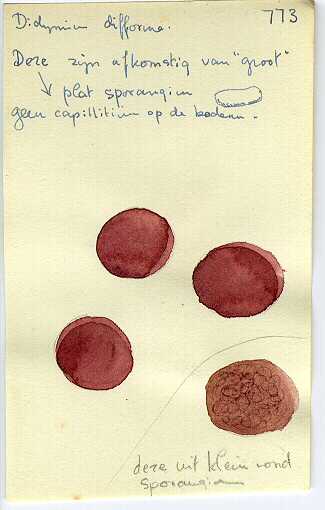 773
Didymium difforme.
Deze zijn afkomstig van "groot"
plat sporangium
geen capillitium op de bodem.
deze uit klein rond
Sporangium